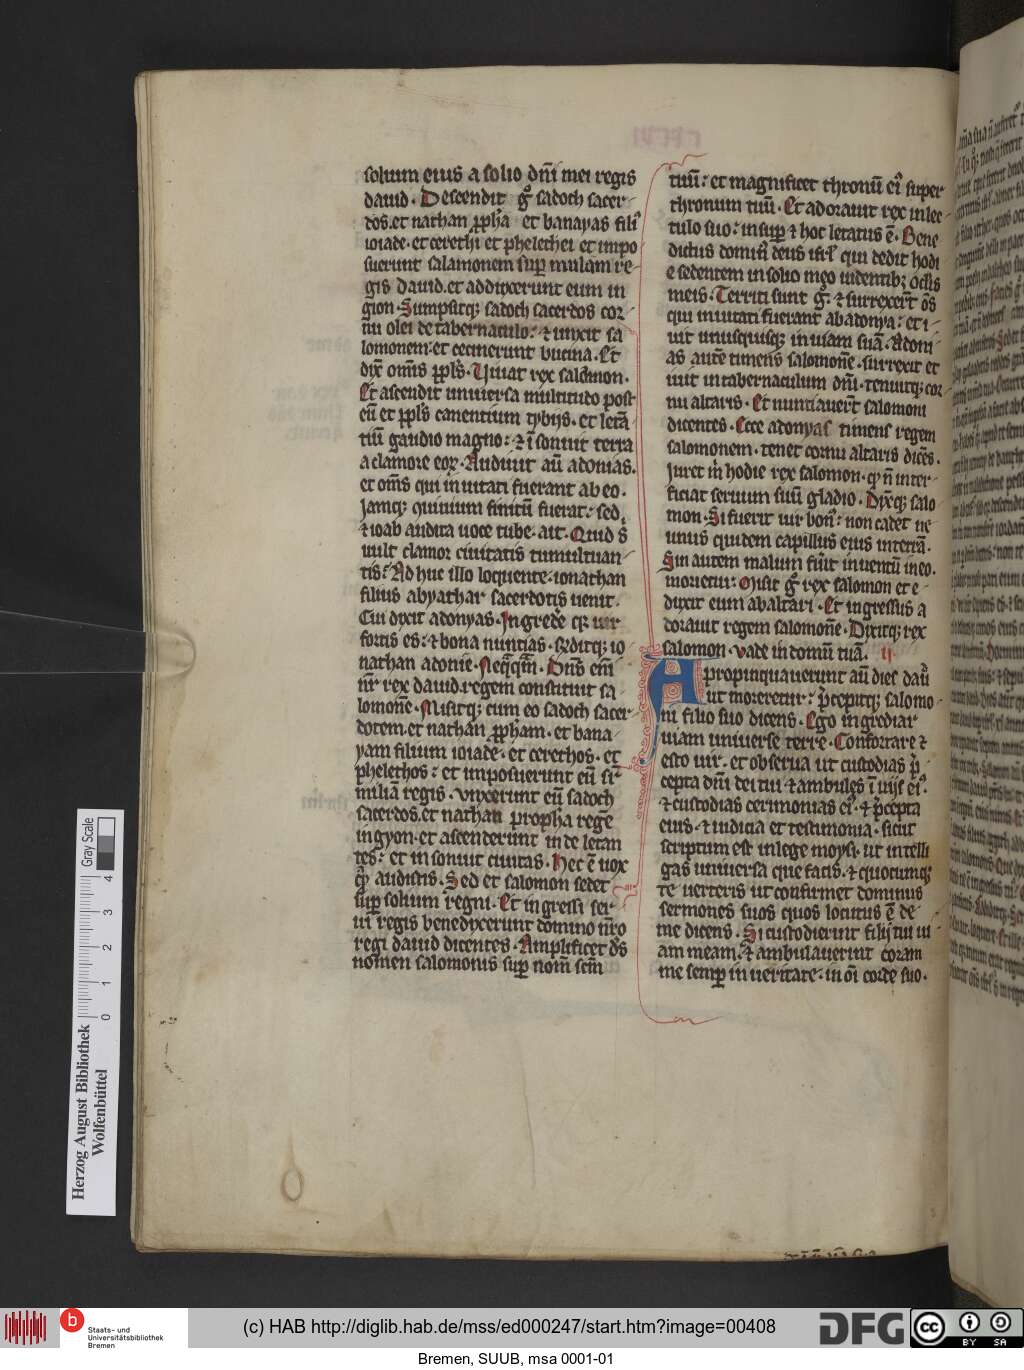 solium eius a solio dñi mei regis
dauid . Descendit gͦ sadoch sacer-
dos.et nathan ꝓph̃a et banayas fili᷒
ioiade . et cerethi et phelethei et impo
suerunt salamonem suꝑ mulam re-
gis dauid.et addixerunt eum in
gion . Sumpsitqꝫ sadoch sacerdos cor
nu olei de tabernaculo : ⁊ unxit sa
lomonem : et cecinerunt bucina . Et
dix̃ oms̃ ppls̃ . Viuat rex salomon .
Et ascendit uniuersa multitudo post
eũ et ppls̃ canentium tybijs . et letã
tiũ gaudio magno : ⁊ ĩsonuit terra
a clamore eoꝝ . Audiuit aũ adonias .
et oms̃ qui inuitati fuerant ab eo .
Jamqꝫ quiuium finitũ fuerat : sed
⁊ ioab audita uoce tube . ait . Quid s
uult clamor ciuitatis tumultuan-
tis : Adhuc illo loquente : ionathan
filius abyathar sacerdotis uenit .
Cui dixit adonyas . Ingredẽ qꝫ uir
fortis es : ⁊ bona nuntias . Rñditqꝫ io
nathan adonie . Neq̃q̃m . Dñs em̃
nr̃ rex dauid.regem constituit sa-
lomonẽ . Misitqꝫ cum eo sadoch sacer-
dotem.et nathan ꝓph̃am . et bana-
yam filium ioiade . et cerethos . et
phelethos : et imposuerunt eũ sr̃
mulã regis . Vnxerunt eũ sadoch
sacerdos.et nathan propha rege
in gyon.et ascenderunt inde letan
tes : et insonuit ciuitas . Hec ẽ uox
q̃ audistis . Sed et salomon sedet
suꝑ solium regni . Et ingressi ser-
ui regis benedixerunt domino nr̃o
regi dauid dicentes . Amplificet ds̃
nomen salomonis suꝑ nom̃ tuum
tuũ : et magnificet thronũ ei᷒ super
thronum tuũ . Et adorauit rex in lec-
tulo suo : insuꝑ ⁊ hoc locutus ẽ . Bene
dictus domin᷒ deus isrl̃ qui dedit hodi
e sedentem in solio meo uidentibꝫ oclis
meis . Territi sunt gͦ : ⁊ surrexer̃t os̃
qui inuitati fuerant ab adonya : et i-
uit unusquisqꝫ in uiam suã . Adoni-
as autẽ timens salomonẽ . surrexit et
iuit in tabernaculum dñi . tenuitqꝫ cor
nu altaris . Et nuntiauer̃t salomoni
dicentes . Ecce adonyas timens regem
salomonem . tenet cornu altaris dicẽs .
Juret m̃ hodie rex salomon . qp̃ ñ inter-
ficiat seruum suũ gladio . Dix̃qꝫ salo
mon . Si fuerit uir bon᷒ : non cadet ne
unus quidem capillus eius in terrã .
Sin autem malum fũit inuentũ in eo .
morietur : Misit gͦ rex salomon et e-
duxit eum ab altari . Et ingressus a
dorauit regem salomonẽ . Dixitqꝫ rex
salomon . vade in domũ tuã . ii
Apropinquauerunt aũ dies daũ
ut moreretur : p̃cepitqꝫ salomo-
ni filio suo dicens . Ego ingrediar
uiam uniuerse terre . Confortare ⁊
esto uir . et obserua ut custodias p̃-
cepta dñi dei tui . ⁊ ambules ĩ uijs ei᷒ .
⁊ custodias cerimonias ei᷒ . ⁊ p̃cepta
eius . ⁊ iudicia et testimonia . sicut
scriptum est in lege moysi . ut intelli
gas uniuersa que facis . ⁊ quocumqꝫ
te uerteris ut confirmet dominus
sermones suos quos locutus ẽ de
me dicens . Si custodierint filij tui ui-
am meam . ⁊ ambulauerint coram
me semꝑ in ueritate : in oĩ corde suo .
Herzog August Bibliothek
Wolfenbüttel
0 1 2 3 4
Gray Scale
b
Staats- und
Universitätsbibliothek
Bremen
(c) HAB http://diglib.hab.de/mss/ed000247/start.htm?image=00408
DFG
cc BY SA
Bremen, SUUB, msa 0001-01